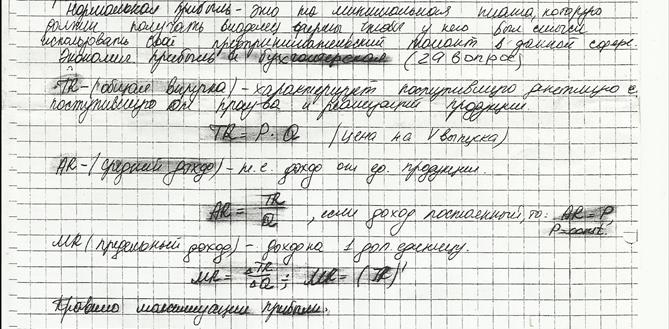 Нормальная прибыль - это та минимальная плата, которую
должен получать владелец фирмы чтобы у него был смысл
использовать свой предпринимательский талант в данной сфере.
Эконом прибыль и бухгалтерская (29 вопрос)
TR - (общая выручка) - характеризует поступившую денежную
поступившую от прод-ва и реализации продукции
TR = P · Q (цена на V выпуска)
AR - (средний доход) - т.е. доход от ед. продукции.
AR = TR / Q , если доход постоянный, то: AR = P,
P = const.
MR (предельный доход) - доход на 1 доп единицу.
MR = ΔTR / ΔQ ; MR = (TR)'
Правило максимизации прибыли.